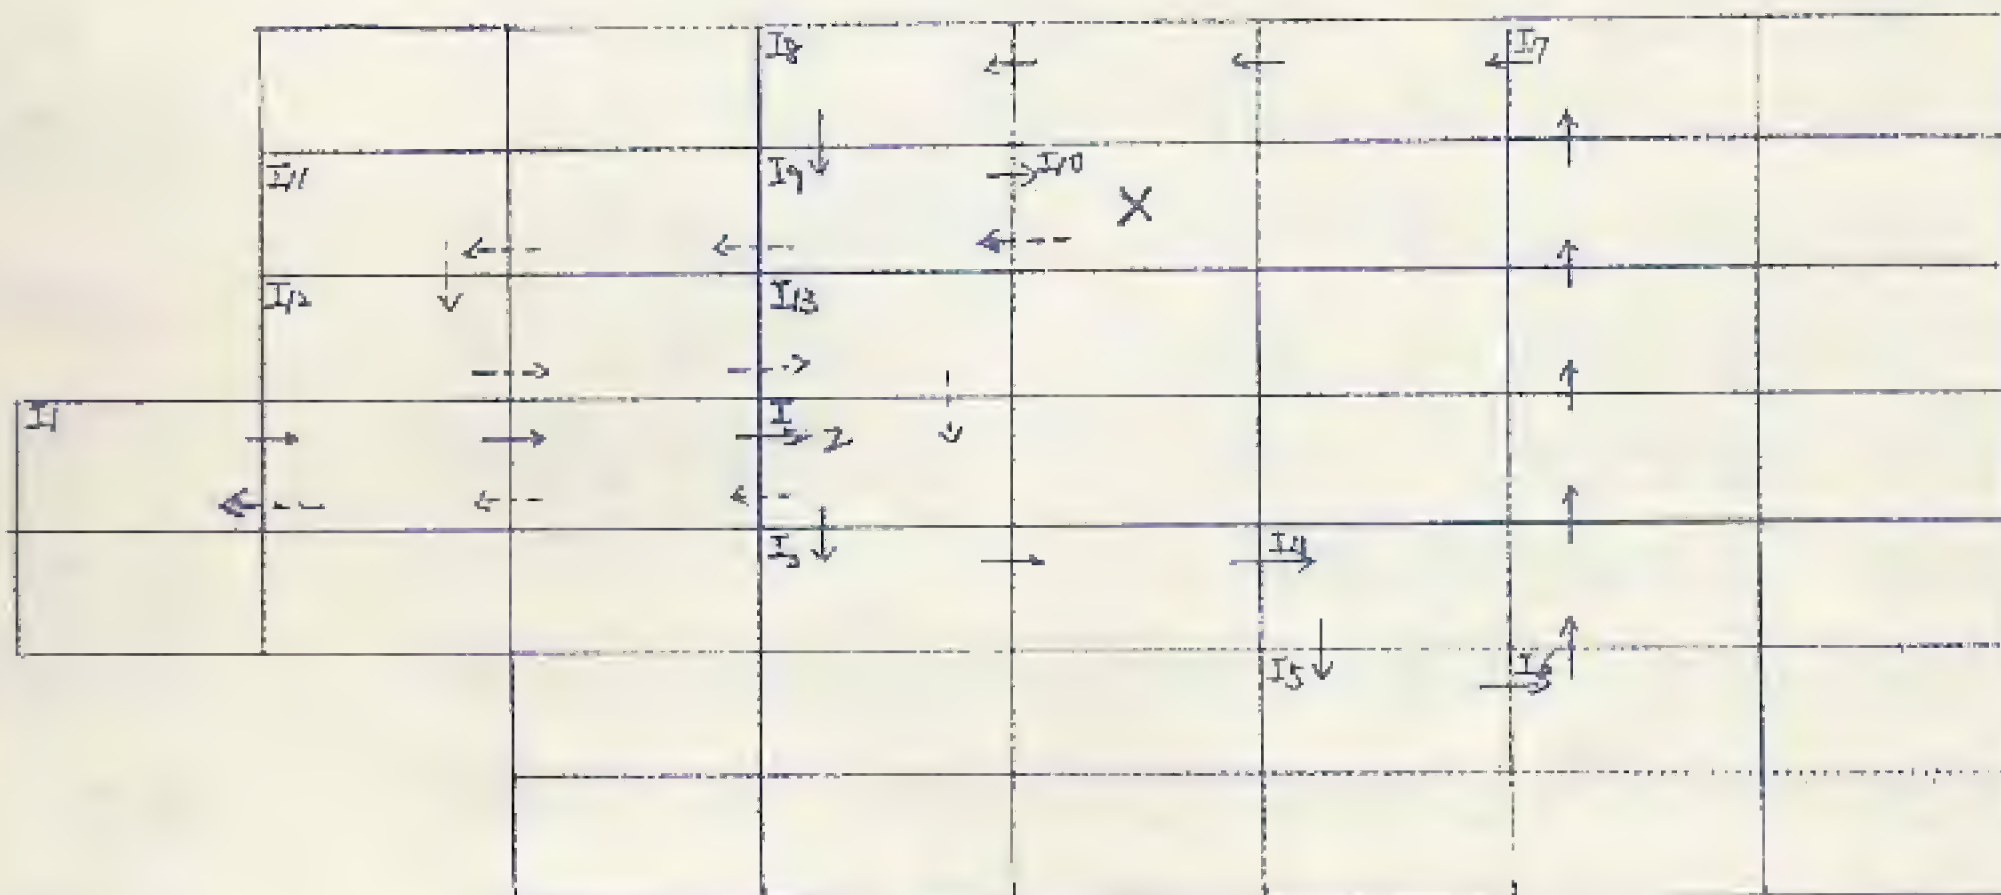 I8 I7
I11 I9 I10
X
I12 I13
I1 I 2
I3 I4
I5 I6